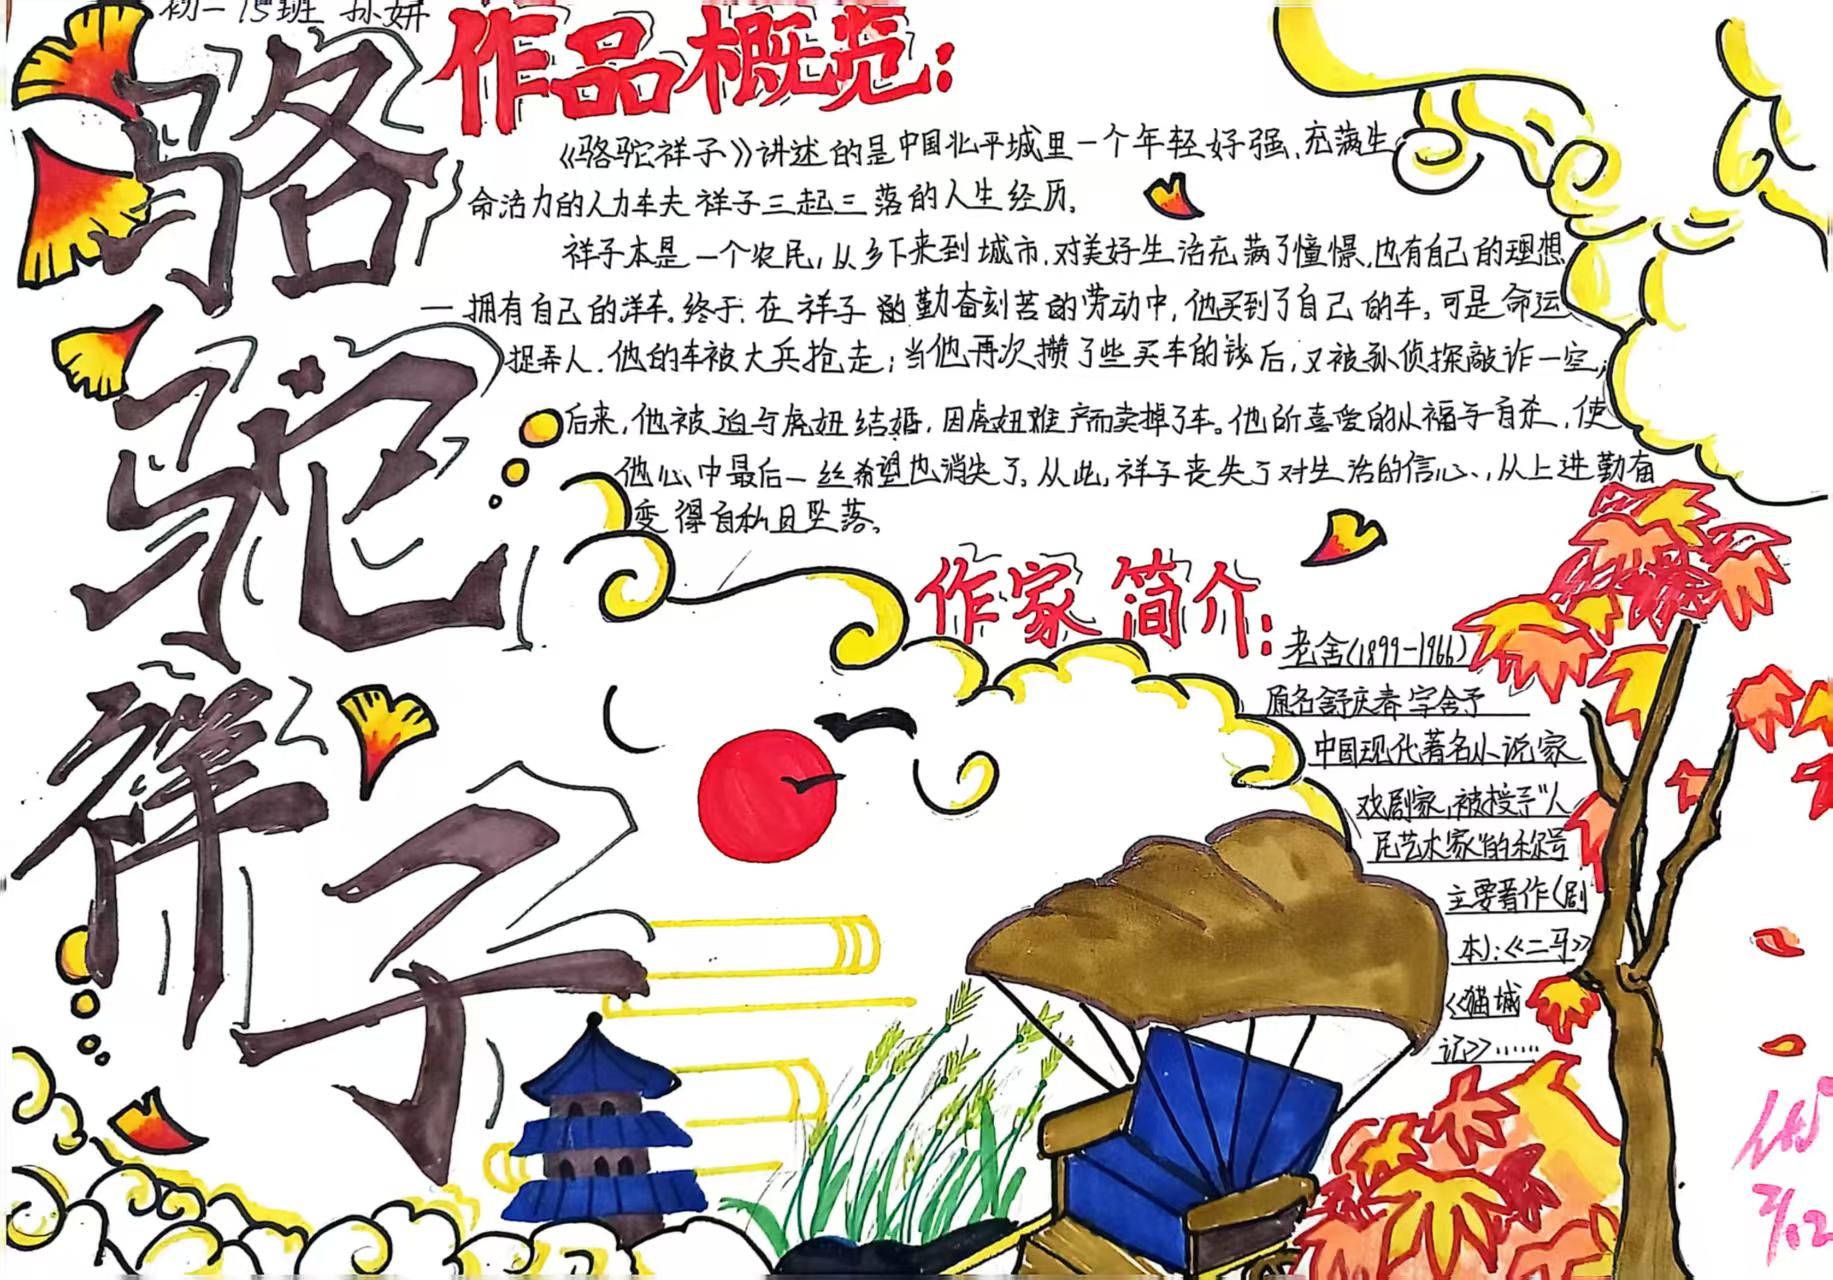 初一15班 孙妍
骆驼祥子
作品概览:
《骆驼祥子》讲述的是中国北平城里一个年轻好强、充满生
命活力的人力车夫祥子三起三落的人生经历。
祥子本是一个农民,从乡下来到城市,对美好生活充满了憧憬,也有自己的理想
—拥有自己的洋车。终于在祥子的勤奋刻苦的劳动中,他买到了自己的车。可是命运
捉弄人.他的车被大兵抢走;当他再次攒了些买车的钱后,又被孙侦探敲诈一空;
后来,他被迫与虎妞结婚,因虎妞难产而卖掉了车。他所喜爱的小福子自杀,使
他心中最后一丝希望也消失了。从此,祥子丧失了对生活的信心、,从上进勤奋
变得自私且坠落。
作家简介:
老舍(1899-1966)
原名舒庆春字舍予
中国现代著名小说家
戏剧家,被授予"人
民艺术家"的称号
主要著作(剧
本):《二马》
《猫城
记》……